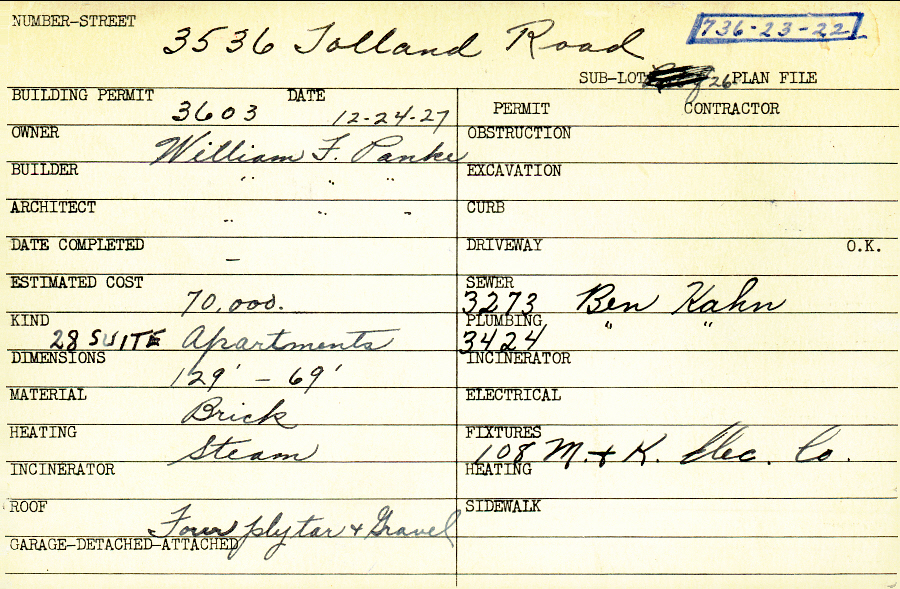 NUMBER-STREET
3536 Tolland Road 736-23-22
SUB-LOT 26 PLAN FILE
BUILDING PERMIT 3603 DATE 12-24-27
PERMIT CONTRACTOR
OWNER William F. Panke
OBSTRUCTION
BUILDER " " "
EXCAVATION
ARCHITECT " " "
CURB
DATE COMPLETED -
DRIVEWAY O.K.
ESTIMATED COST 70,000.
SEWER 3273 Ben Kahn
KIND 28 SUITE Apartments
PLUMBING 3424 " "
DIMENSIONS 129' - 69'
INCINERATOR
MATERIAL Brick
ELECTRICAL
HEATING Steam
FIXTURES 108 M. + K. Elec. Co.
INCINERATOR
HEATING
ROOF Four ply tar + Gravel
SIDEWALK
GARAGE-DETACHED-ATTACHED